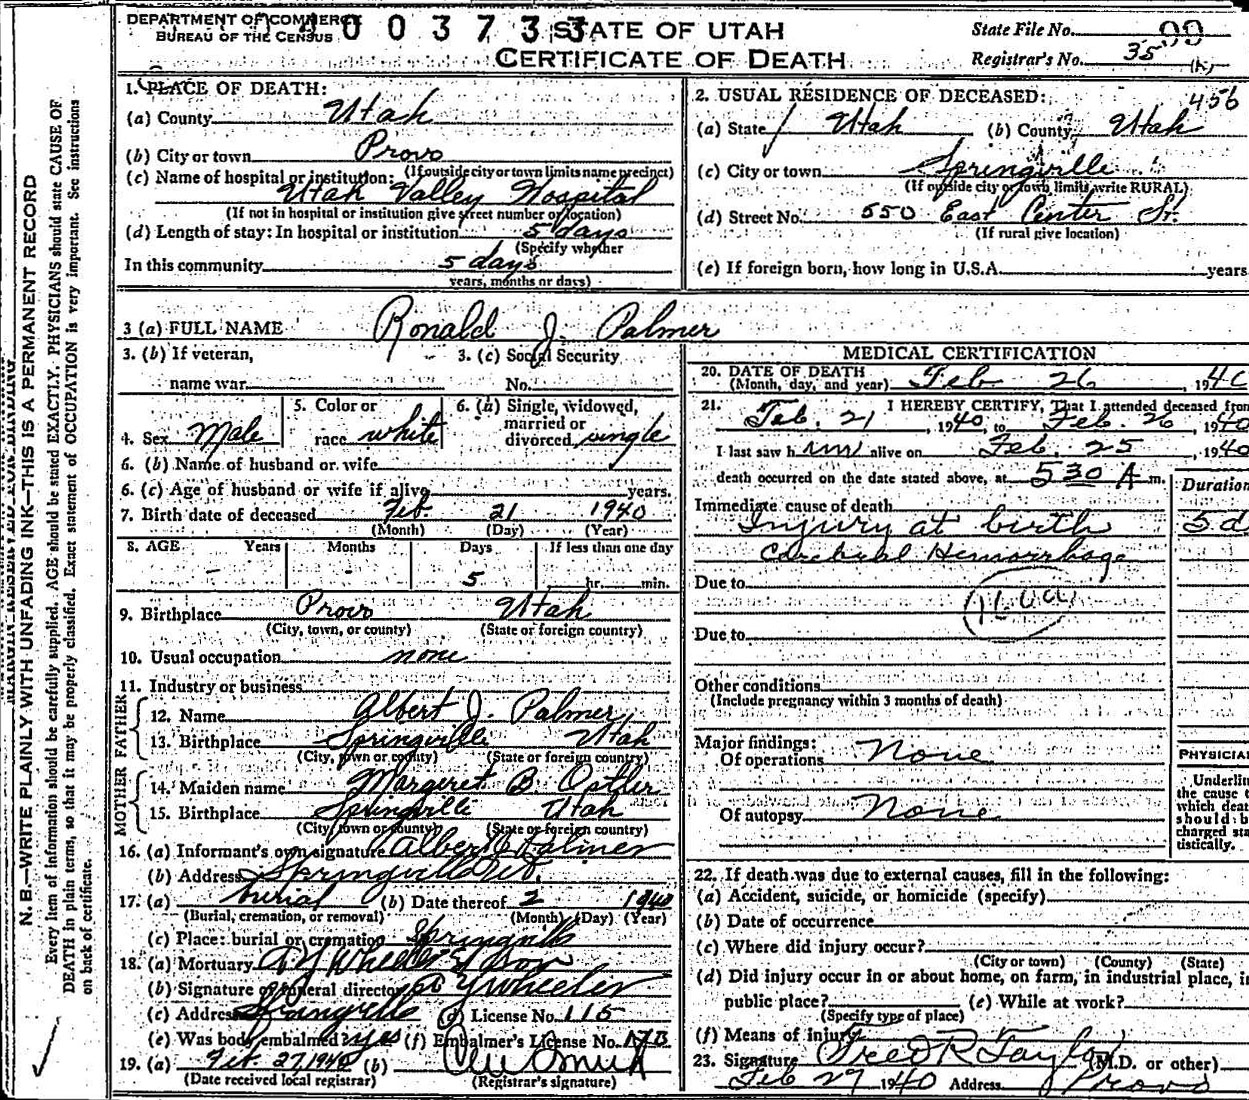 DEPARTMENT OF COMMERCE
BUREAU OF THE CENSUS
0 0 3 7 3 3
STATE OF UTAH
CERTIFICATE OF DEATH
State File No. 99
Registrar's No. 35 (K)
1. PLACE OF DEATH:
(a) County Utah
(b) City or town Provo
(If outside city or town limits name precinct)
(c) Name of hospital or institution:
Utah Valley Hospital
(If not in hospital or institution give street number or location)
(d) Length of stay: In hospital or institution 5 days
(Specify whether
In this community 5 days
years, months or days)
2. USUAL RESIDENCE OF DECEASED: 456
(a) State Utah (b) County Utah
(c) City or town Springville
(If outside city or town limits, write RURAL)
(d) Street No. 550 East Center St.
(If rural give location)
(e) If foreign born, how long in U.S.A. years
3 (a) FULL NAME Ronald J. Palmer
3. (b) If veteran,
name war
3. (c) Social Security
No.
4. Sex Male
5. Color or
race white
6. (a) Single, widowed,
married or
divorced single
6. (b) Name of husband or wife
6. (c) Age of husband or wife if alive years.
7. Birth date of deceased Feb. 21 1940
(Month) (Day) (Year)
8. AGE Years Months Days If less than one day
- - 5 hr. min.
9. Birthplace Provo Utah
(City, town, or county) (State or foreign country)
10. Usual occupation none
11. Industry or business
FATHER
12. Name Albert J. Palmer
13. Birthplace Springville Utah
(City, town or county) (State or foreign country)
MOTHER
14. Maiden name Margaret B. Ostler
15. Birthplace Springville Utah
(City, town or county) (State or foreign country)
16. (a) Informant's own signature Albert J Palmer
(b) Address Springville Ut.
17. (a) burial (b) Date thereof 2 1940
(Burial, cremation, or removal) (Month) (Day) (Year)
(c) Place: burial or cremation Springville
18. (a) Mortuary A Y Wheeler & Son
(b) Signature of funeral director A Y Wheeler
(c) Address Springville (d) License No. 115
(e) Was body embalmed? yes (f) Embalmer's License No. 17B
19. (a) Feb. 27, 1940 (b)
(Date received local registrar) (Registrar's signature)
MEDICAL CERTIFICATION
20. DATE OF DEATH
(Month, day, and year) Feb 26, 1940
21. I HEREBY CERTIFY, That I attended deceased from
Feb. 21, 1940, to Feb. 26, 1940
I last saw him alive on Feb. 25, 1940
death occurred on the date stated above, at 530 A m.
Duration
Immediate cause of death
Injury at birth 5 d
Cerebral Hemorrhage
Due to
Due to
Other conditions
(Include pregnancy within 3 months of death)
Major findings:
Of operations None
Of autopsy None
PHYSICIAN
Underline
the cause t
which deat
should b
charged sta
tistically.
22. If death was due to external causes, fill in the following:
(a) Accident, suicide, or homicide (specify)
(b) Date of occurrence
(c) Where did injury occur?
(City or town) (County) (State)
(d) Did injury occur in or about home, on farm, in industrial place, in
public place? (e) While at work?
(Specify type of place)
(f) Means of injury
23. Signature Fred R Taylor (M.D. or other)
Feb 27 1940 Address Provo
MARGIN RESERVED FOR BINDING
N. B.—WRITE PLAINLY WITH UNFADING INK—THIS IS A PERMANENT RECORD
Every item of information should be carefully supplied. AGE should be stated EXACTLY. PHYSICIANS should state CAUSE OF
DEATH in plain terms, so that it may be properly classified. Exact statement of OCCUPATION is very important. See instructions
on back of certificate.